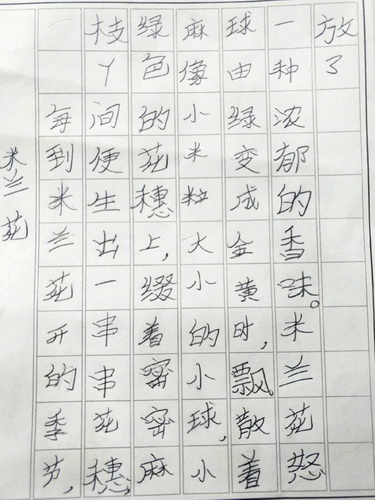 米兰花
每到米兰花开的季节,
枝丫间便生出一串串花穗,
绿色的花穗上,缀着密密麻
麻像小米粒大小的小球,小
球由绿变成金黄时,飘散着
一种浓郁的香味。米兰花怒
放了